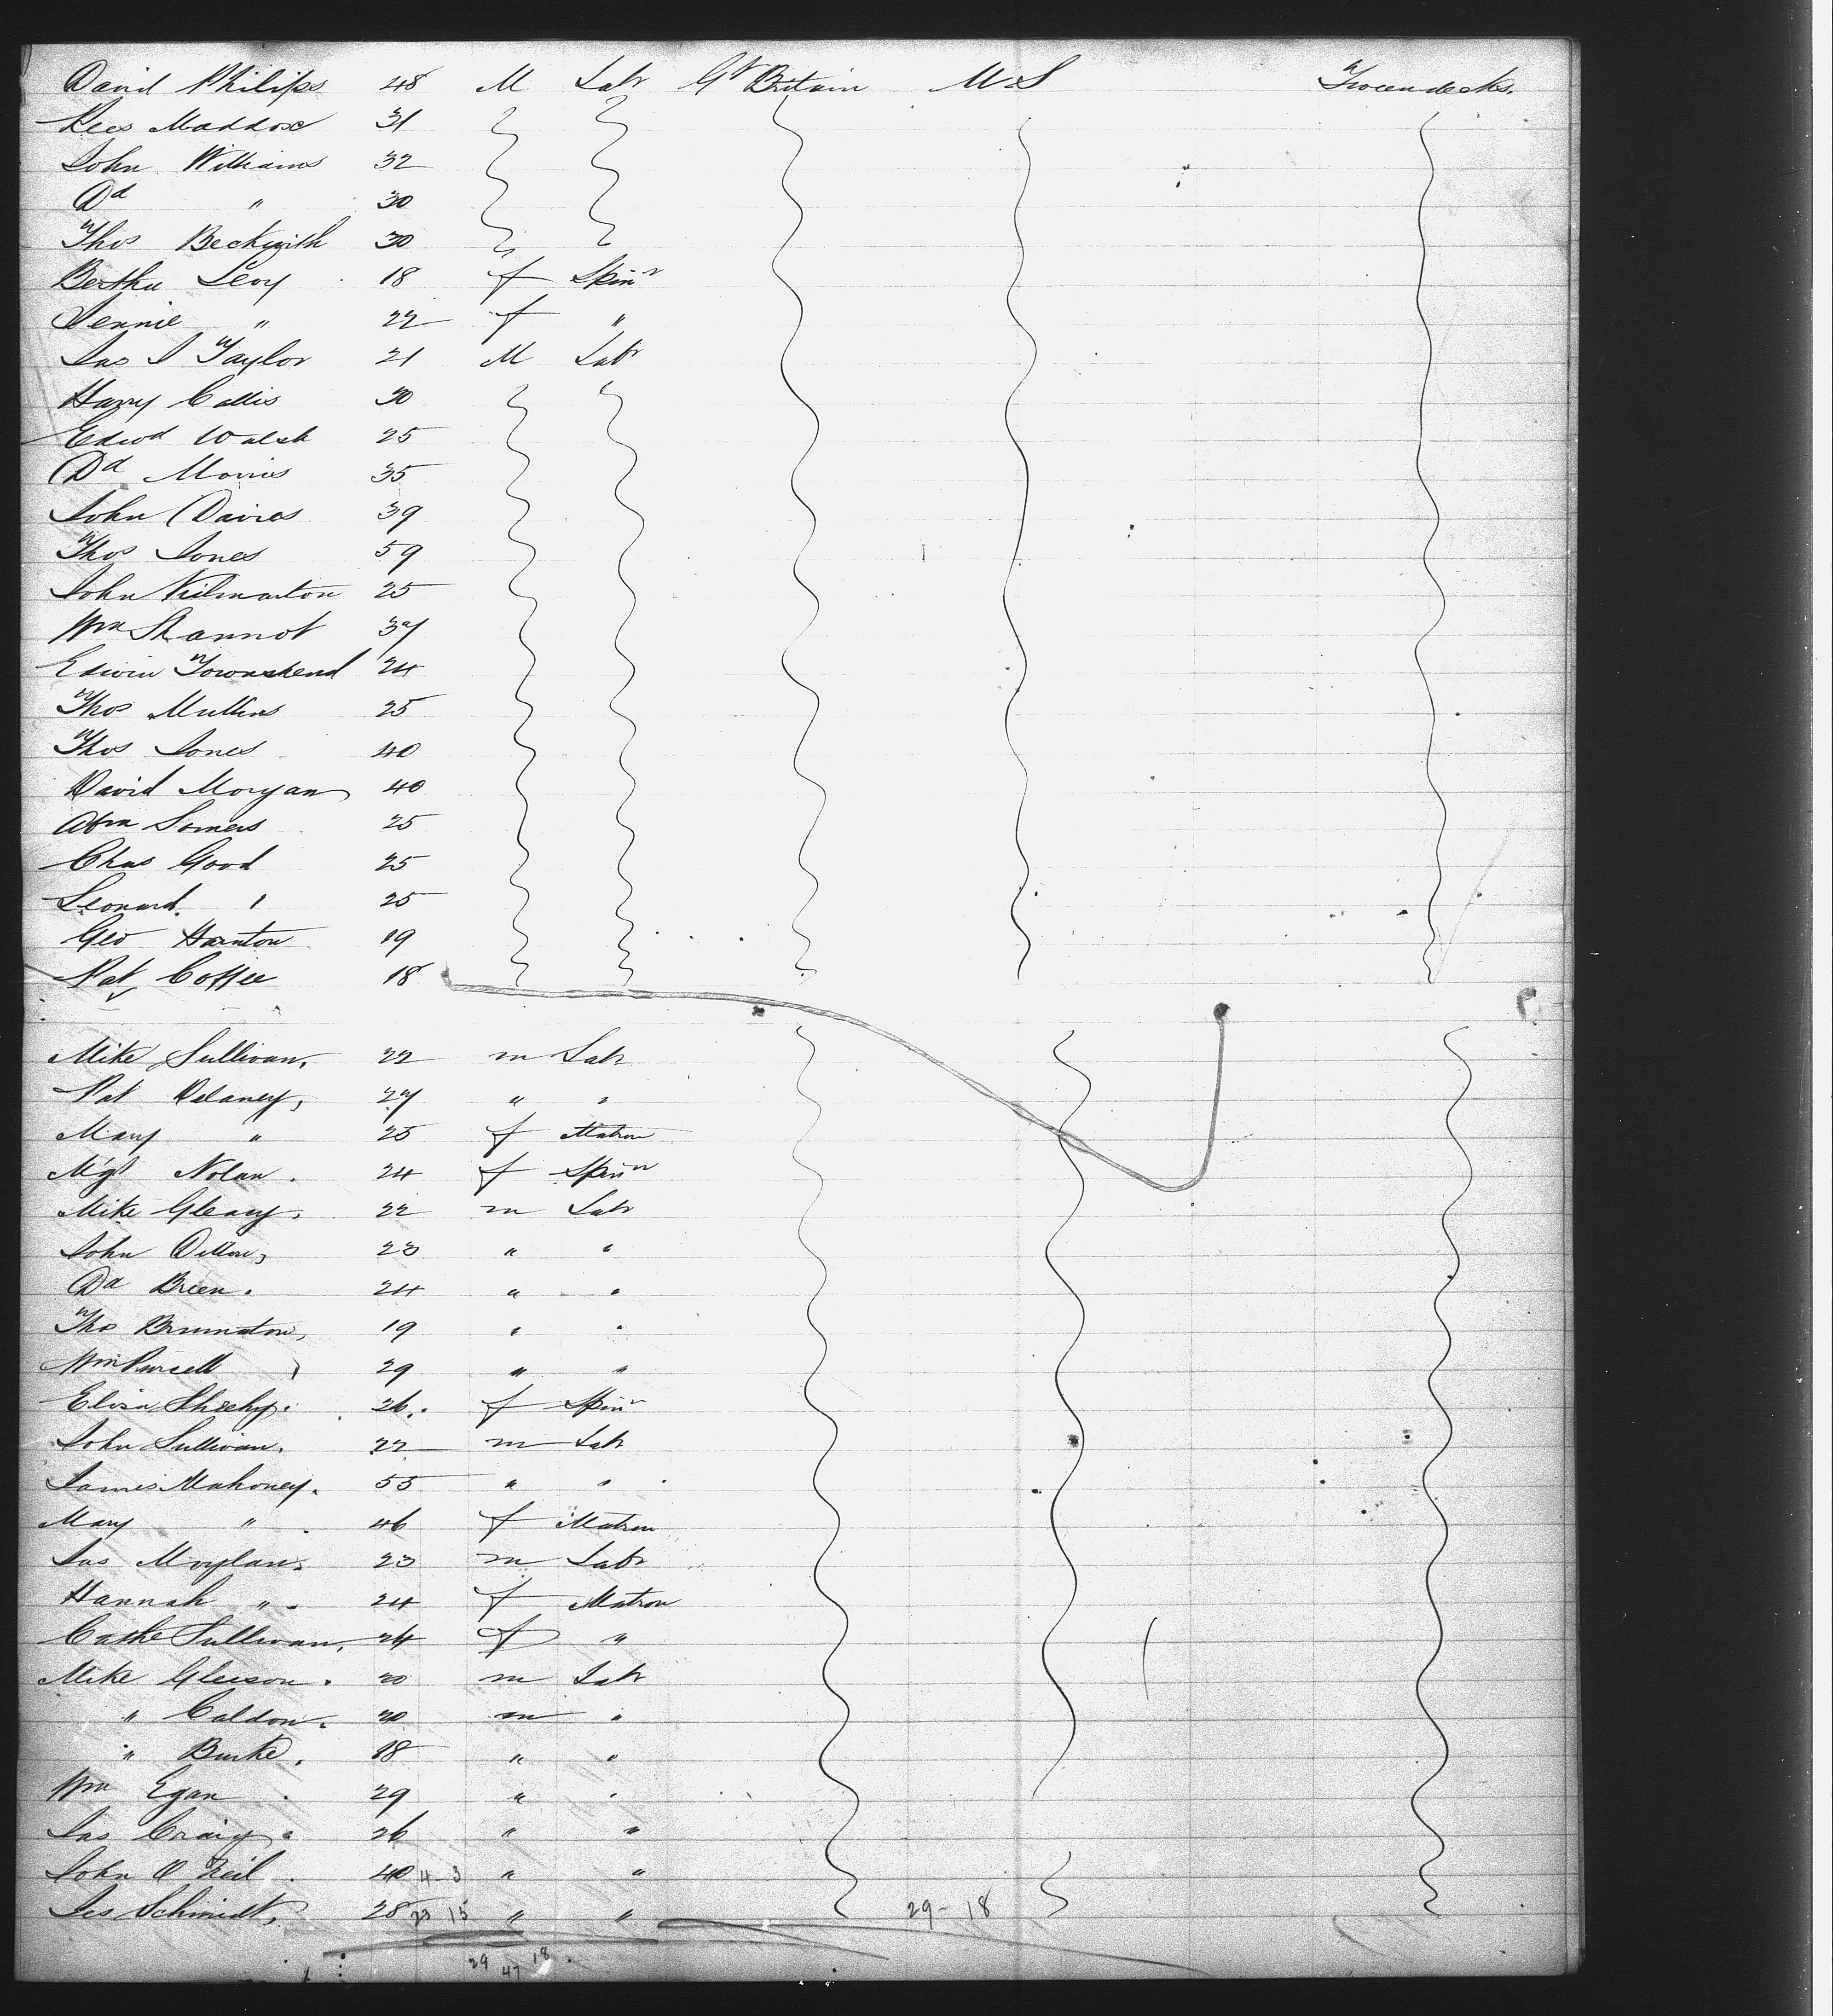 David Philips 48 M Labr Gt Britain U S Tweendecks.
Rees Maddox 31
John Williams 32
Dd " 30
Thos Beckwith 30
Bertha Levy 18 f Spinr
Jennie " 22 f "
Jas J Taylor 21 M Labr
Harry Callis 30
Edwd Walsh 25
Dd Morris 35
John Davies 39
Thos Jones 59
John Kilmarton 25
Wm Shannot 37
Edwin Townshend 24
Thos Mullins 25
Thos Jones 40
David Morgan 40
Abm Somers 25
Chas Good 25
Leonard " 25
Geo Hainton 19
Pat Coffee 18
Mike Sullivan. 22 m Labr
Pat Delaney, 27 " "
Mary " 25 f Matron
Mgt Nolan. 24 f Spinr
Mike Gleary. 22 m Labr
John Dillon, 23 " "
Dd Breen. 24 " "
Tho 19 " "
Wm Purcell 29 " "
Eliza Sheehy. 26. f Spinr
John Sullivan. 22 m Labr
James Mahoney. 55 " "
Mary " 46 f Matron
Jas Moylan. 23 m Labr
Hannah " 24 f Matron
Cathe Sullivan. 24 f "
Mike Gleeson. 20 m Labr
" Caldon. 20 m "
" Burke. 18 " "
Wm Egan 29 " "
Jas Craig. 26 " "
John O Neil. 40 4 3 " "
Jos Schmidt. 28 23 15 " " 29-18
29 47 18